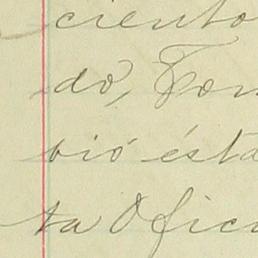 ciento
do, Tom
bió ésta
ta Ofici